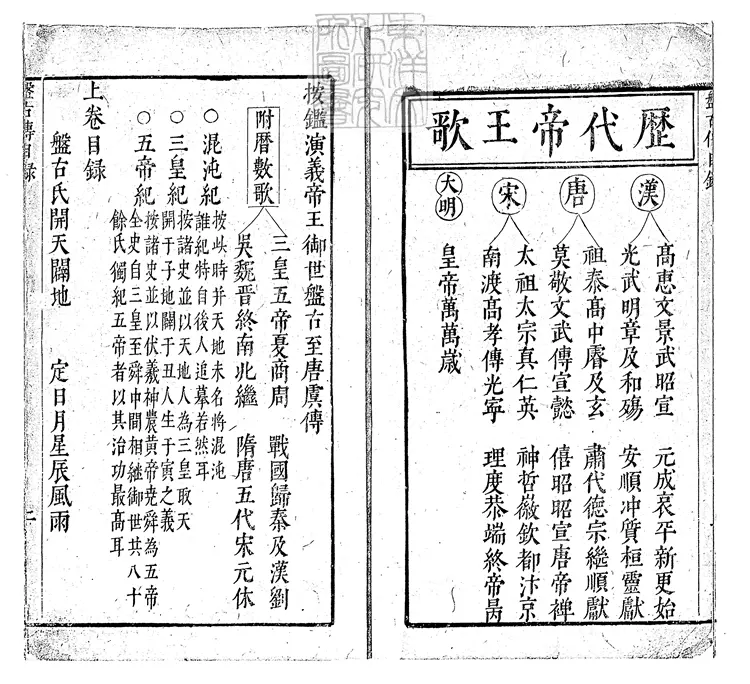 歷代帝王歌
漢
高惠文景武昭宣　元成哀平新更始
光武明章及和殤　安順冲質桓靈獻
唐
祖泰高中睿及玄　肅代德宗繼順獻
莫敬文武傳宣懿　僖昭昭宣唐帝禪
宋
太祖太宗真仁英　神哲徽欽都汴京
南渡高孝傳光寧　理度恭端終帝昺
大明
皇帝萬萬歲
按鑑演義帝王御世盤古至唐虞傳
附曆數歌
三皇五帝夏商周　戰國歸秦及漢劉
吳魏晉終南北繼　隋唐五代宋元休
○混沌紀
按此時并天地未名將混沌
誰紀特自後人追慕若然耳
○三皇紀
按諸史並以天地人為三皇取天
開于子地闢于丑人生于寅之義
○五帝紀
按諸史並以伏羲神農黃帝堯舜為五帝
全史自三皇至舜中間相繼御世共八十
餘氏獨紀五帝者以其治功最高耳
上卷目録
盤古氏開天闢地　定日月星辰風雨
盤古傳目録
二